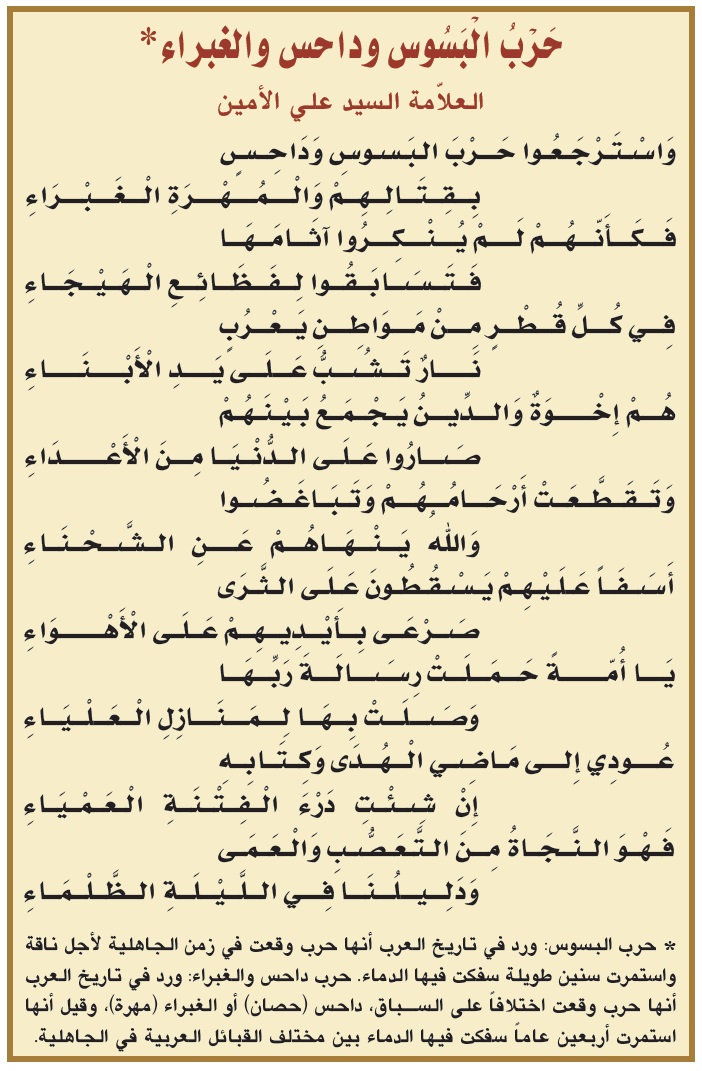 حَرْبُ الْبَسُوس وداحس والغبراء*
العلاّمة السيد علي الأمين
وَاسْتَرْجَعُوا حَرْبَ البَسوسِ وَدَاحِسٍ
بِقِتَالِهِمْ وَالْمُهْرَةِ الْغَبْرَاءِ
فَكَأَنّهُمْ لَمْ يُنْكِرُوا آثَامَهَا
فَتَسَابَقُوا لِفَظَائِعِ الْهَيْجَاءِ
فِي كُلِّ قُطْرٍ مِنْ مَوَاطِنِ يَعْرُبٍ
نَارٌ تَشُبُّ عَلَى يَدِ الْأَبْنَاءِ
هُمْ إِخْوَةٌ وَالدِّينُ يَجْمَعُ بَيْنَهُمْ
صَارُوا عَلَى الدُّنْيَا مِنَ الْأَعْدَاءِ
وَتَقَطَّعَتْ أَرْحَامُهُمْ وَتَبَاغَضُوا
وَاللهُ يَنْهَاهُمْ عَنِ الشَّحْنَاءِ
أَسَفَاً عَلَيْهِمْ يَسْقُطُونَ عَلَى الثَّرَى
صَرْعَى بِأَيْدِيهِمْ عَلَى الْأَهْوَاءِ
يَا أُمّةً حَمَلَتْ رِسَالَةَ رَبِّهَا
وَصَلَتْ بِهَا لِمَنَازِلِ الْعَلْيَاءِ
عُودِي إِلى مَاضِي الْهُدَى وَكِتَابِهِ
إِنْ شِئْتِ دَرْءَ الْفِتْنَةِ الْعَمْيَاءِ
فَهْوَ النَّجَاةُ مِنَ التَّعَصُّبِ وَالْعَمَى
وَدَلِيلُنَا فِي اللَّيْلَةِ الظَّلْمَاءِ
* حرب البسوس: ورد في تاريخ العرب أنها حرب وقعت في زمن الجاهلية لأجل ناقة
واستمرت سنين طويلة سفكت فيها الدماء. حرب داحس والغبراء: ورد في تاريخ العرب
أنها حرب وقعت اختلافاً على السباق، داحس (حصان) أو الغبراء (مهرة)، وقيل أنها
استمرت أربعين عاماً سفكت فيها الدماء بين مختلف القبائل العربية في الجاهلية.